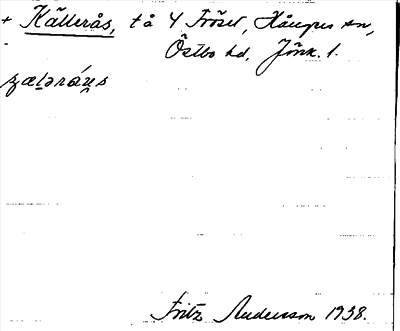 + Källerås, t å 4 Fröset, Hånger sn,
Östbo hd, Jönk. l.
Fritz Andersson 1938.